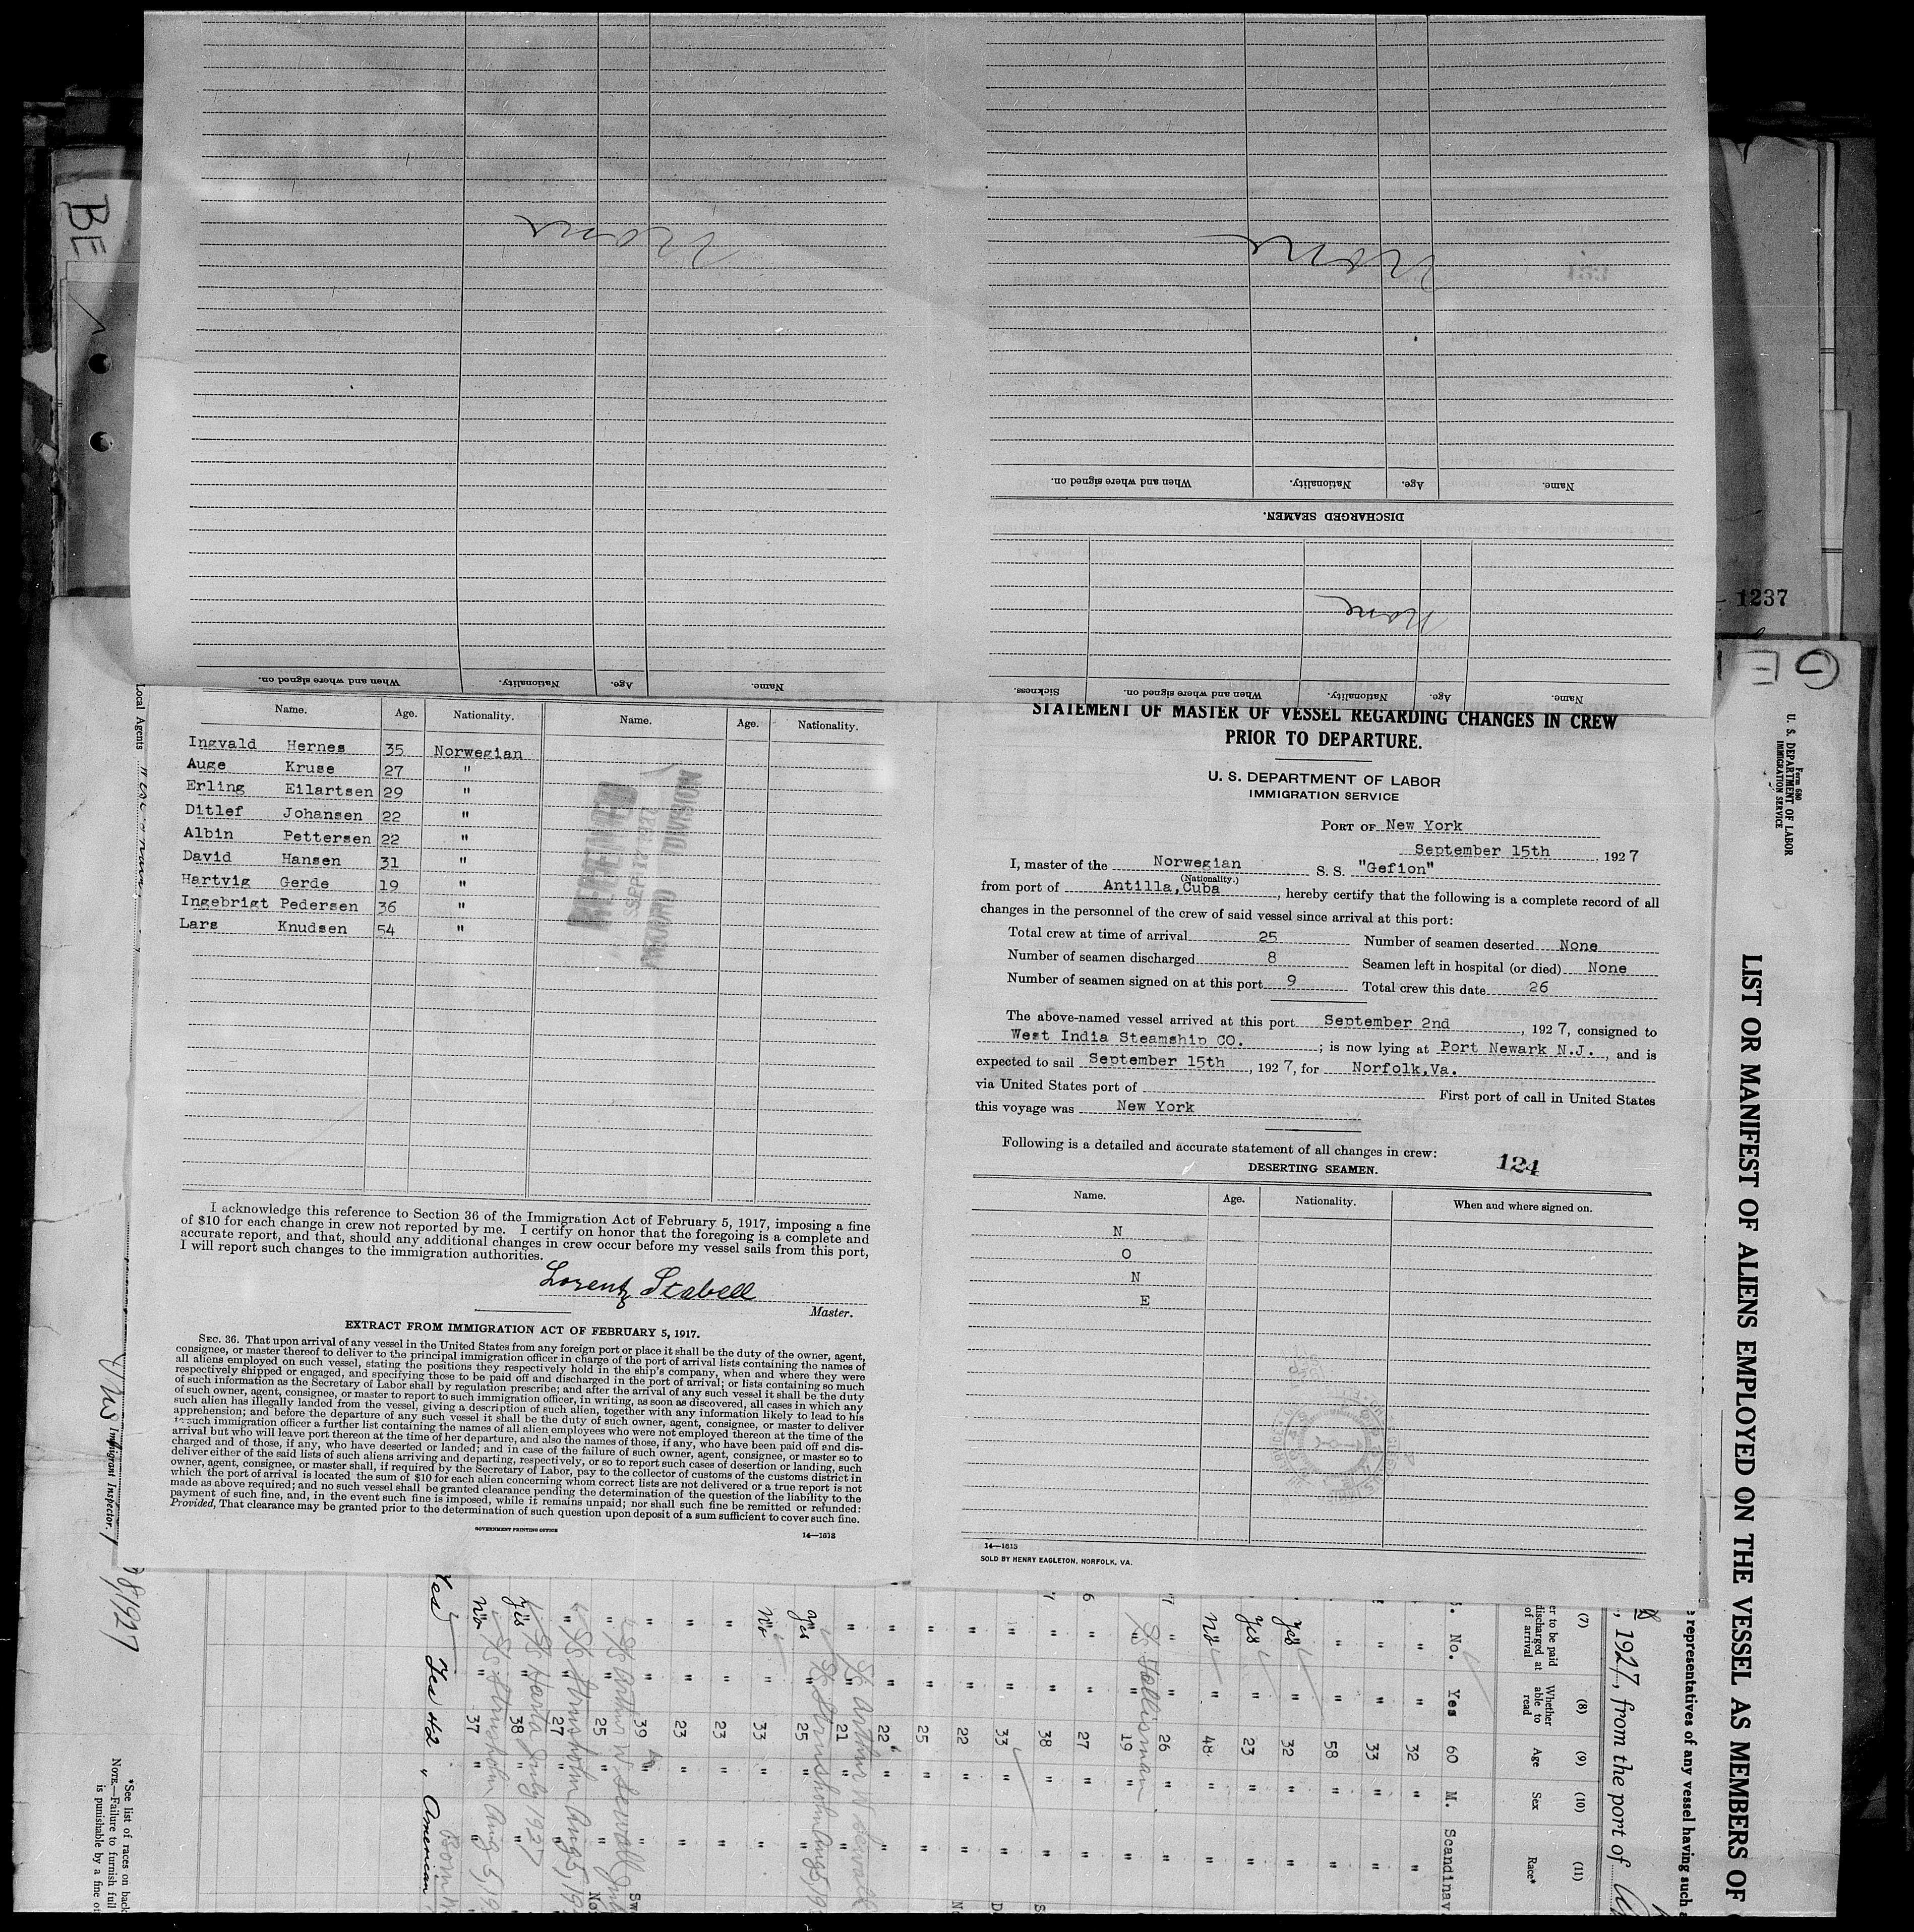 BE
None
None
When and where signed on.
Nationality.
Age.
Name.
DISCHARGED SEAMEN.
None
Sickness.
When and where signed on.
Nationality.
Age.
Name.
When and where signed on.
Nationality.
Age.
Name.
1237
Local Agents
Name. Age. Nationality. Name. Age. Nationality.
Ingvald Hernes 35 Norwegian
Auge Kruse 27 "
Erling Eilartsen 29 "
Ditlef Johansen 22 "
Albin Pettersen 22 "
David Hansen 31 "
Hartvig Gerde 19 "
Ingebrigt Pedersen 36 "
Lars Knudsen 54 "
DIVISION
I acknowledge this reference to Section 36 of the Immigration Act of February 5, 1917, imposing a fine
of $10 for each change in crew not reported by me. I certify on honor that the foregoing is a complete and
accurate report, and that, should any additional changes in crew occur before my vessel sails from this port,
I will report such changes to the immigration authorities.
Lorentz Stabell
Master.
EXTRACT FROM IMMIGRATION ACT OF FEBRUARY 5, 1917.
SEC. 36. That upon arrival of any vessel in the United States from any foreign port or place it shall be the duty of the owner, agent,
consignee, or master thereof to deliver to the principal immigration officer in charge of the port of arrival lists containing the names of
all aliens employed on such vessel, stating the positions they respectively hold in the ship's company, when and where they were
respectively shipped or engaged, and specifying those to be paid off and discharged in the port of arrival; or lists containing so much
of such information as the Secretary of Labor shall by regulation prescribe; and after the arrival of any such vessel it shall be the duty
of such owner, agent, consignee, or master to report to such immigration officer, in writing, as soon as discovered, all cases in which any
such alien has illegally landed from the vessel, giving a description of such alien, together with any information likely to lead to his
apprehension; and before the departure of any such vessel it shall be the duty of such owner, agent, consignee, or master to deliver
to such immigration officer a further list containing the names of all alien employees who were not employed thereon at the time of the
arrival but who will leave port thereon at the time of her departure, and also the names of those, if any, who have been paid off and dis-
charged and of those, if any, who have deserted or landed; and in case of the failure of such owner, agent, consignee, or master so to
deliver either of the said lists of such aliens arriving and departing, respectively, or so to report such cases of desertion or landing, such
owner, agent, consignee, or master shall, if required by the Secretary of Labor, pay to the collector of customs of the customs district in
which the port of arrival is located the sum of $10 for each alien concerning whom correct lists are not delivered or a true report is not
made as above required; and no such vessel shall be granted clearance pending the determination of the question of the liability to the
payment of such fine, and, in the event such fine is imposed, while it remains unpaid; nor shall such fine be remitted or refunded:
Provided, That clearance may be granted prior to the determination of such question upon deposit of a sum sufficient to cover such fine.
GOVERNMENT PRINTING OFFICE
14—1613
STATEMENT OF MASTER OF VESSEL REGARDING CHANGES IN CREW
PRIOR TO DEPARTURE.
U. S. DEPARTMENT OF LABOR
IMMIGRATION SERVICE
PORT OF New York
September 15th, 1927
I, master of the Norwegian S. S. "Gefion"
(Nationality.)
from port of Antilla,Cuba, hereby certify that the following is a complete record of all
changes in the personnel of the crew of said vessel since arrival at this port:
Total crew at time of arrival 25 Number of seamen deserted None
Number of seamen discharged 8 Seamen left in hospital (or died) None
Number of seamen signed on at this port 9 Total crew this date 26
The above-named vessel arrived at this port September 2nd, 1927, consigned to
West India Steamship CO.; is now lying at Port Newark N.J., and is
expected to sail September 15th, 1927, for Norfolk,Va.
via United States port of First port of call in United States
this voyage was New York
Following is a detailed and accurate statement of all changes in crew:
124
DESERTING SEAMEN.
Name. Age. Nationality. When and where signed on.
N
O
N
E
14—1613
SOLD BY HENRY EAGLETON, NORFOLK, VA.
Form 680
U. S. DEPARTMENT OF LABOR
IMMIGRATION SERVICE
LIST OR MANIFEST OF ALIENS EMPLOYED ON THE VESSEL AS MEMBERS OF
representatives of any vessel having such
, 1927, from the port of
(7) (8) (9) (10) (11)
er to be paid
discharged at
of arrival
Whether
able to
read
Age
Sex
Race*
No. Yes 60 M. Scandinav
" " 32 " "
" " 33 " "
" " 58 " "
Yes " 32 " "
Yes " 23 " "
No " 48 " "
" " 26 " "
" " 19 " "
" " 27 " "
" " 38 " "
" " 33 " "
" " 22 " "
" " 25 " "
" " 22 " "
" " 21 " "
yes " 25 " "
No " 33 " "
" " 23 " "
" " 23 " "
" " 39 " "
" " 25 " "
" " 27 " "
yes " 38 " "
No " 37 " "
Yes Yes 42 " American
Immigrant Inspector.
*See list of races on back
NOTE.—Failure to furnish full
is punishable by a fine of